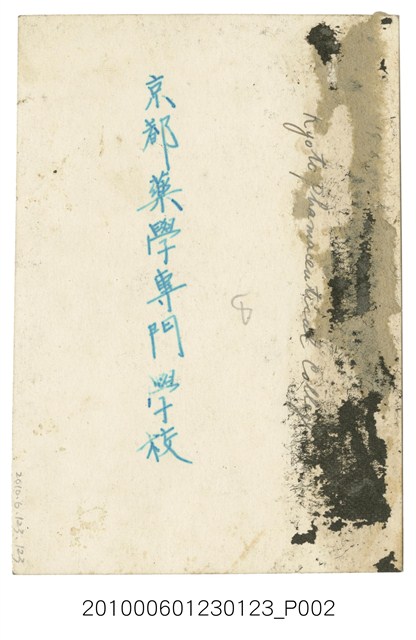 京都藥學専門學校
Kyoto Pharmaceutical
2010.6.123.123
201000601230123_P002